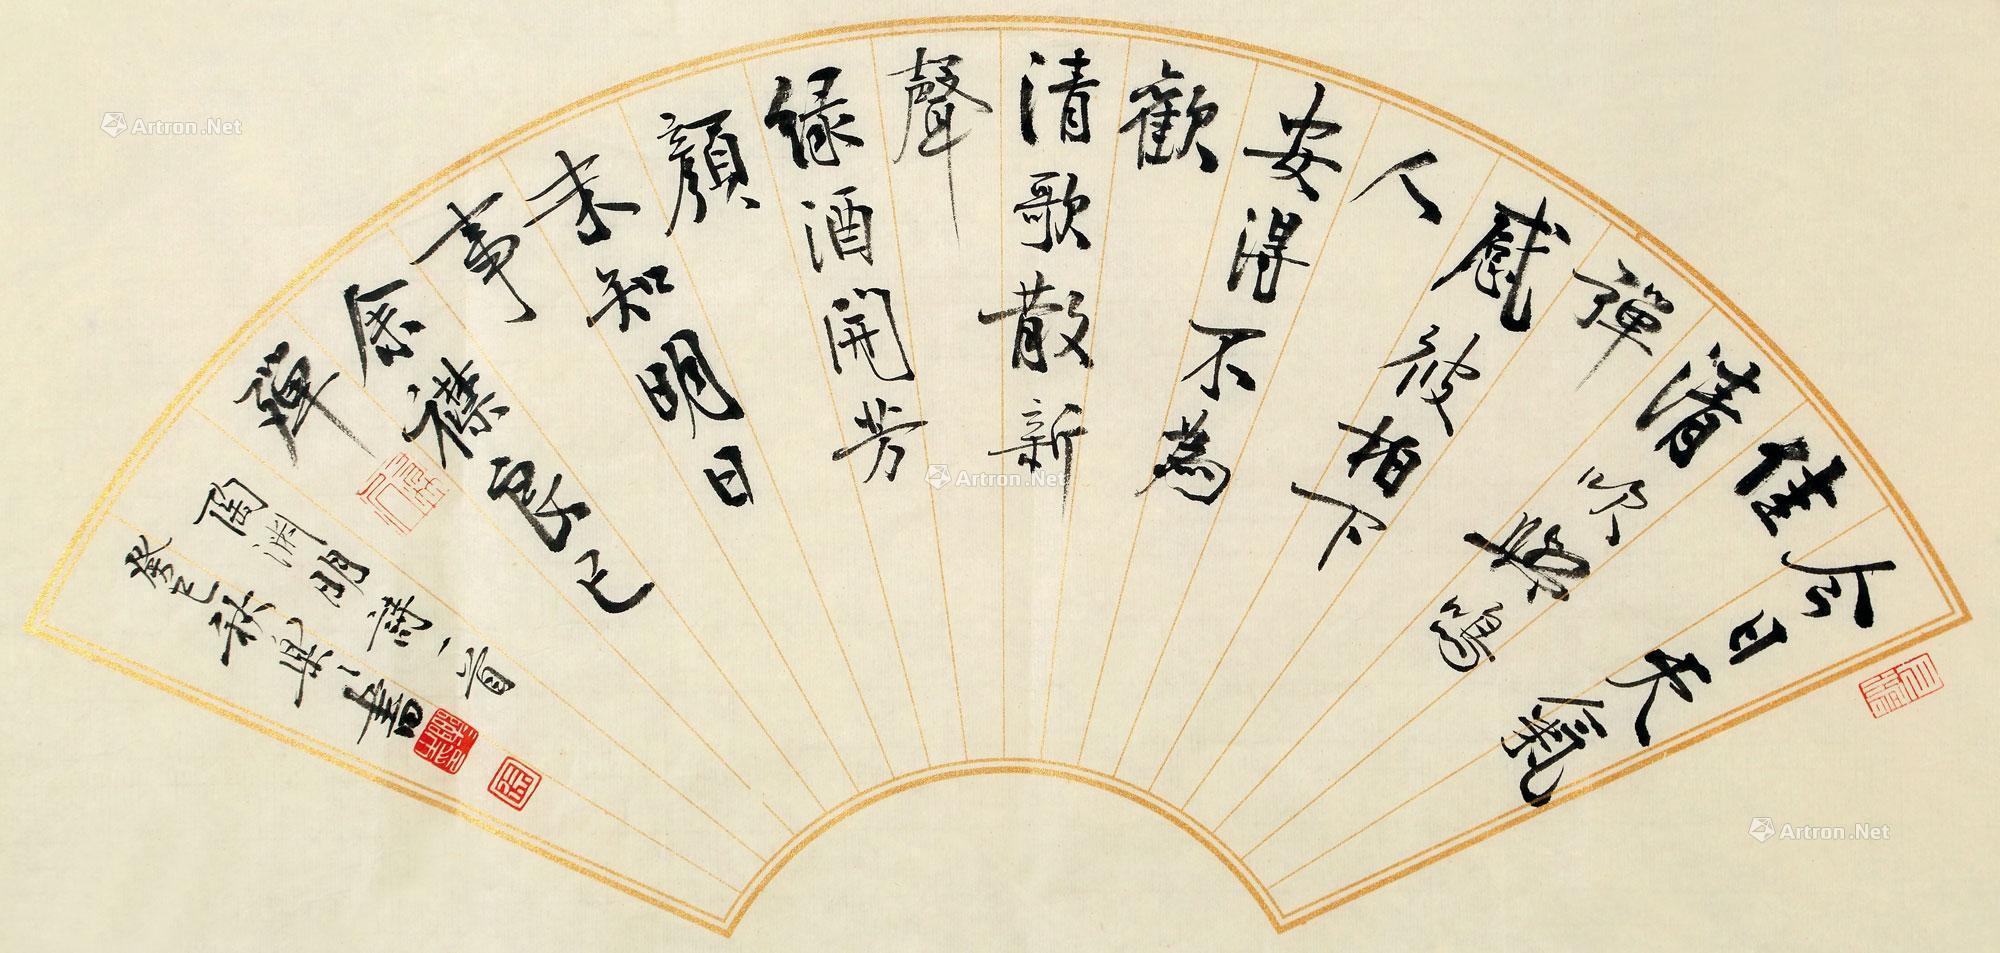 今日天氣
佳
清吹與鳴
彈
感彼柏下
人
安得不為
歡
清歌散新
聲
綠酒開芳
顏
未知明日
事
余襟良已
殫
陶淵明詩一首
癸巳秋書
Artron.Net
Artron.Net
Artron.Net